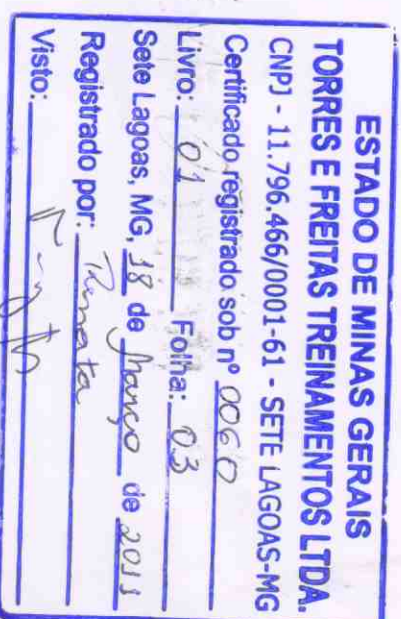 ESTADO DE MINAS GERAIS
TORRES E FREITAS TREINAMENTOS LTDA.
CNPJ - 11.796.466/0001-61 - SETE LAGOAS-MG
Certificado registrado sob nº 0060
Livro: 01 Folha: 03
Sete Lagoas, MG, 18 de Março de 2011
Registrado por: Renata
Visto: